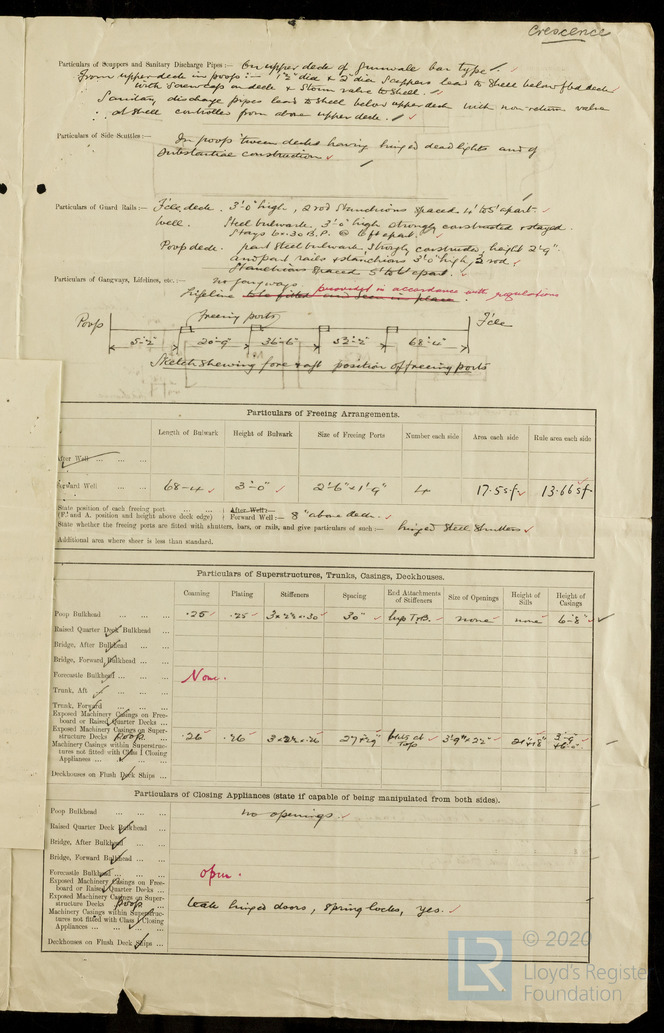 Crescence
Particulars of Scuppers and Sanitary Discharge Pipes :— On upper deck of gunwale bar type.
From upper deck in poop :— 1½" dia & 2" dia Scuppers lead to shell below fbd deck
with screw caps on deck & storm valve to shell.
Sanitary discharge pipes lead to shell below upper deck with non-return valve
at shell controlled from above upper deck.
Particulars of Side Scuttles :—
In poop 'tween decks having hinged deadlights and of
substantial construction
Particulars of Guard Rails :— F'cle deck. 3'0" high, 2 rod stanchions spaced 4' to 5' apart.
Well. Steel bulwark 3'0" high strongly constructed & stayed.
Stays 6 × .30 B.P. @ 6 ft apart.
Poop deck. part steel bulwark, strongly constructed, height 2'9"
and part rails & stanchions 3'0" high, 2 rod
Stanchions spaced 5' to 6' apart.
Particulars of Gangways, Lifelines, etc. :— no gangways.
Lifeline to be fitted and seen in place. provided in accordance with regulations
Poop Freeing ports F'cle
68'-4"
Sketch shewing fore & aft position of freeing ports
Particulars of Freeing Arrangements.
Length of Bulwark Height of Bulwark Size of Freeing Ports Number each side Area each side Rule area each side
After Well
Forward Well 68-4 3'-0" 2'-6" × 1'-9" 4 17.5 sf 13.66 sf
State position of each freeing port After Well :—
(F. and A. position and height above deck edge) Forward Well :— 8" above deck.
State whether the freeing ports are fitted with shutters, bars, or rails, and give particulars of such :— hinged steel shutters
Additional area where sheer is less than standard.
Particulars of Superstructures, Trunks, Casings, Deckhouses.
Coaming Plating Stiffeners Spacing End Attachments of Stiffeners Size of Openings Height of Sills Height of Casings
Poop Bulkhead .25 .25 3 × 2½ × .30 30" none none 6-8"
Raised Quarter Deck Bulkhead
Bridge, After Bulkhead
Bridge, Forward Bulkhead
Forecastle Bulkhead None.
Trunk, Aft
Trunk, Forward
Exposed Machinery Casings on Free-
board or Raised Quarter Decks
Exposed Machinery Casings on Super-
structure Decks poop .26 .26
Machinery Casings within Superstruc-
tures not fitted with Class 1 Closing
Appliances
Deckhouses on Flush Deck Ships
Particulars of Closing Appliances (state if capable of being manipulated from both sides).
Poop Bulkhead no openings.
Raised Quarter Deck Bulkhead
Bridge, After Bulkhead
Bridge, Forward Bulkhead
Forecastle Bulkhead open.
Exposed Machinery Casings on Free-
board or Raised Quarter Decks
Exposed Machinery Casings on Super-
structure Decks poop teak hinged doors, spring locks, yes.
Machinery Casings within Superstruc-
tures not fitted with Class 1 Closing
Appliances
Deckhouses on Flush Deck Ships
LR © 2020
Lloyd's Register
Foundation